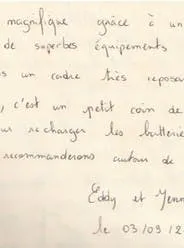 magnifique grâce à un
de superbes équipements
s un cadre très reposa
, c'est un petit coin de
ur recharger les batterie
recommanderons autour de
Eddy et Yenn
le 03/09/2